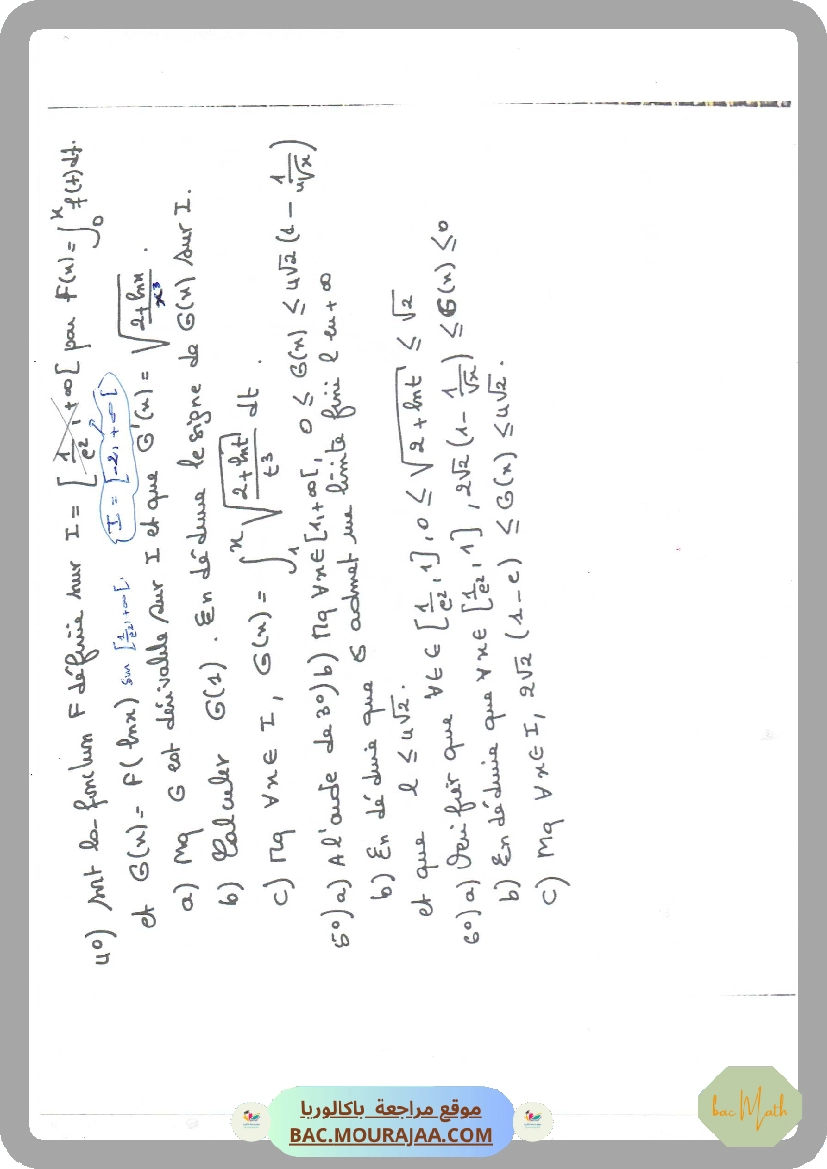 4°) soit la fonction F définie sur I = [1/e², +∞[ par F(x) = ∫₀ˣ f(t)dt.
I = [-2, +∞[
et G(x) = F(lnx) sur [1/e², +∞[.
a) Mq G est dérivable sur I et que G'(x) = √((2+lnx)/x³).
b) Calculer G(1). En déduire le signe de G(x) sur I.
c) Mq ∀x∈I, G(x) = ∫₁ˣ √((2+lnt)/t³) dt.
5°) a) A l'aide de 3°) b) Mq ∀x∈[1,+∞[, 0 ≤ G(x) ≤ 4√2 (1 - 1/⁴√x)
b) En déduire que G admet une limite fini l en +∞
et que l ≤ 4√2.
6°) a) Verifier que ∀t∈[1/e², 1], 0 ≤ √(2+lnt) ≤ √2
b) En déduire que ∀x∈[1/e², 1], 2√2 (1 - 1/√x) ≤ G(x) ≤ 0
c) Mq ∀x∈I, 2√2 (1-e) ≤ G(x) ≤ 4√2.
موقع مراجعة باكالوريا
BAC.MOURAJAA.COM
bac Math